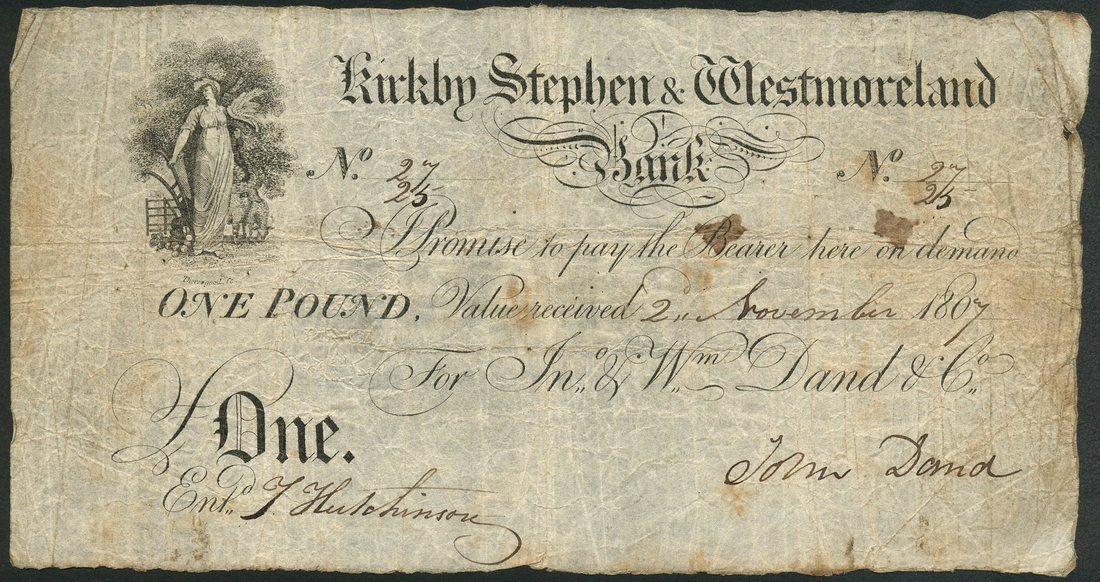 Kirkby Stephen & Westmoreland
Bank
No. 27/25 No. 27/25
I Promise to pay the Bearer here on demand
ONE POUND, Value received 2d November 1807
For Jno. & Wm. Dand & Co.
£ One.
Entd. J Hutchinson John Dand